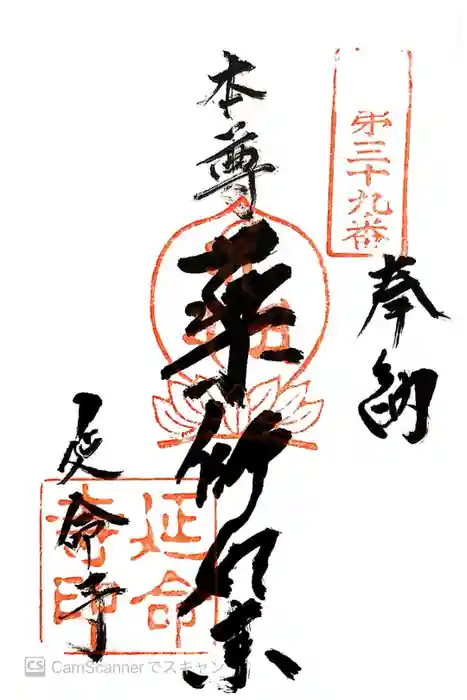 㐧三十九番
奉納
本尊
薬師如来
延命寺
延命
寺印
CS CamScanner でスキャン